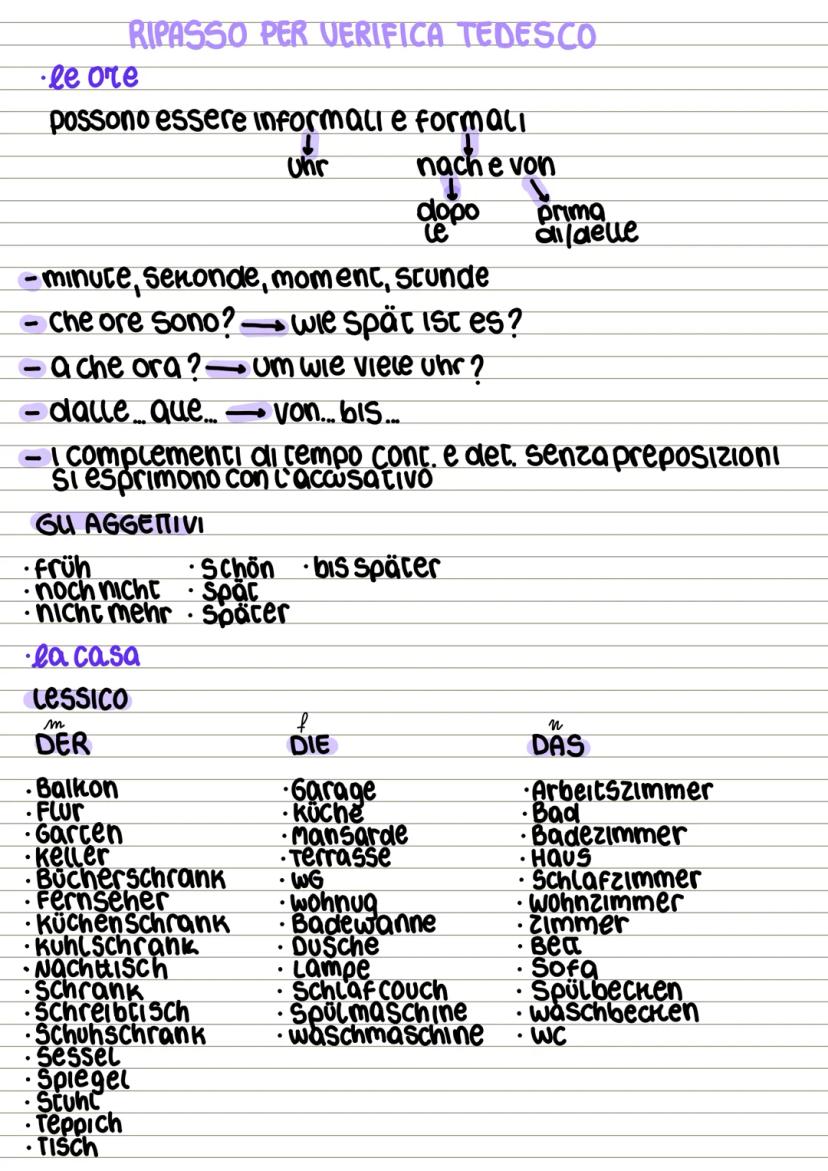 RIPASSO PER VERIFICA TEDESCO
·le ore
possono essere informali e formali
↓ ↓
Uhr nach e von
↓ ↘
dopo le prima di/delle
- minute, sekonde, moment, stunde
- che ore sono? → wie spät ist es?
- a che ora? → um wie viele uhr?
- dalle... alle... → von... bis...
- i complementi di tempo cont. e det. senza preposizioni
si esprimono con l'accusativo
GLI AGGETTIVI
· früh · schön · bis später
· noch nicht · spät
· nicht mehr · später
·la casa
LESSICO
m f n
DER DIE DAS
· Balkon · Garage · Arbeitszimmer
· Flur · Küche · Bad
· Garten · Mansarde · Badezimmer
· Keller · Terrasse · Haus
· Bücherschrank · WG · Schlafzimmer
· Fernseher · wohnug · wohnzimmer
· Küchenschrank · Badewanne · zimmer
· kuhlschrank · Dusche · Bett
· Nachttisch · Lampe · Sofa
· Schrank · Schlafcouch · Spülbecken
· Schreibtisch · Spülmaschine · waschbecken
· Schuhschrank · waschmaschine · WC
· Sessel
· Spiegel
· Stuhl
· Teppich
· Tisch